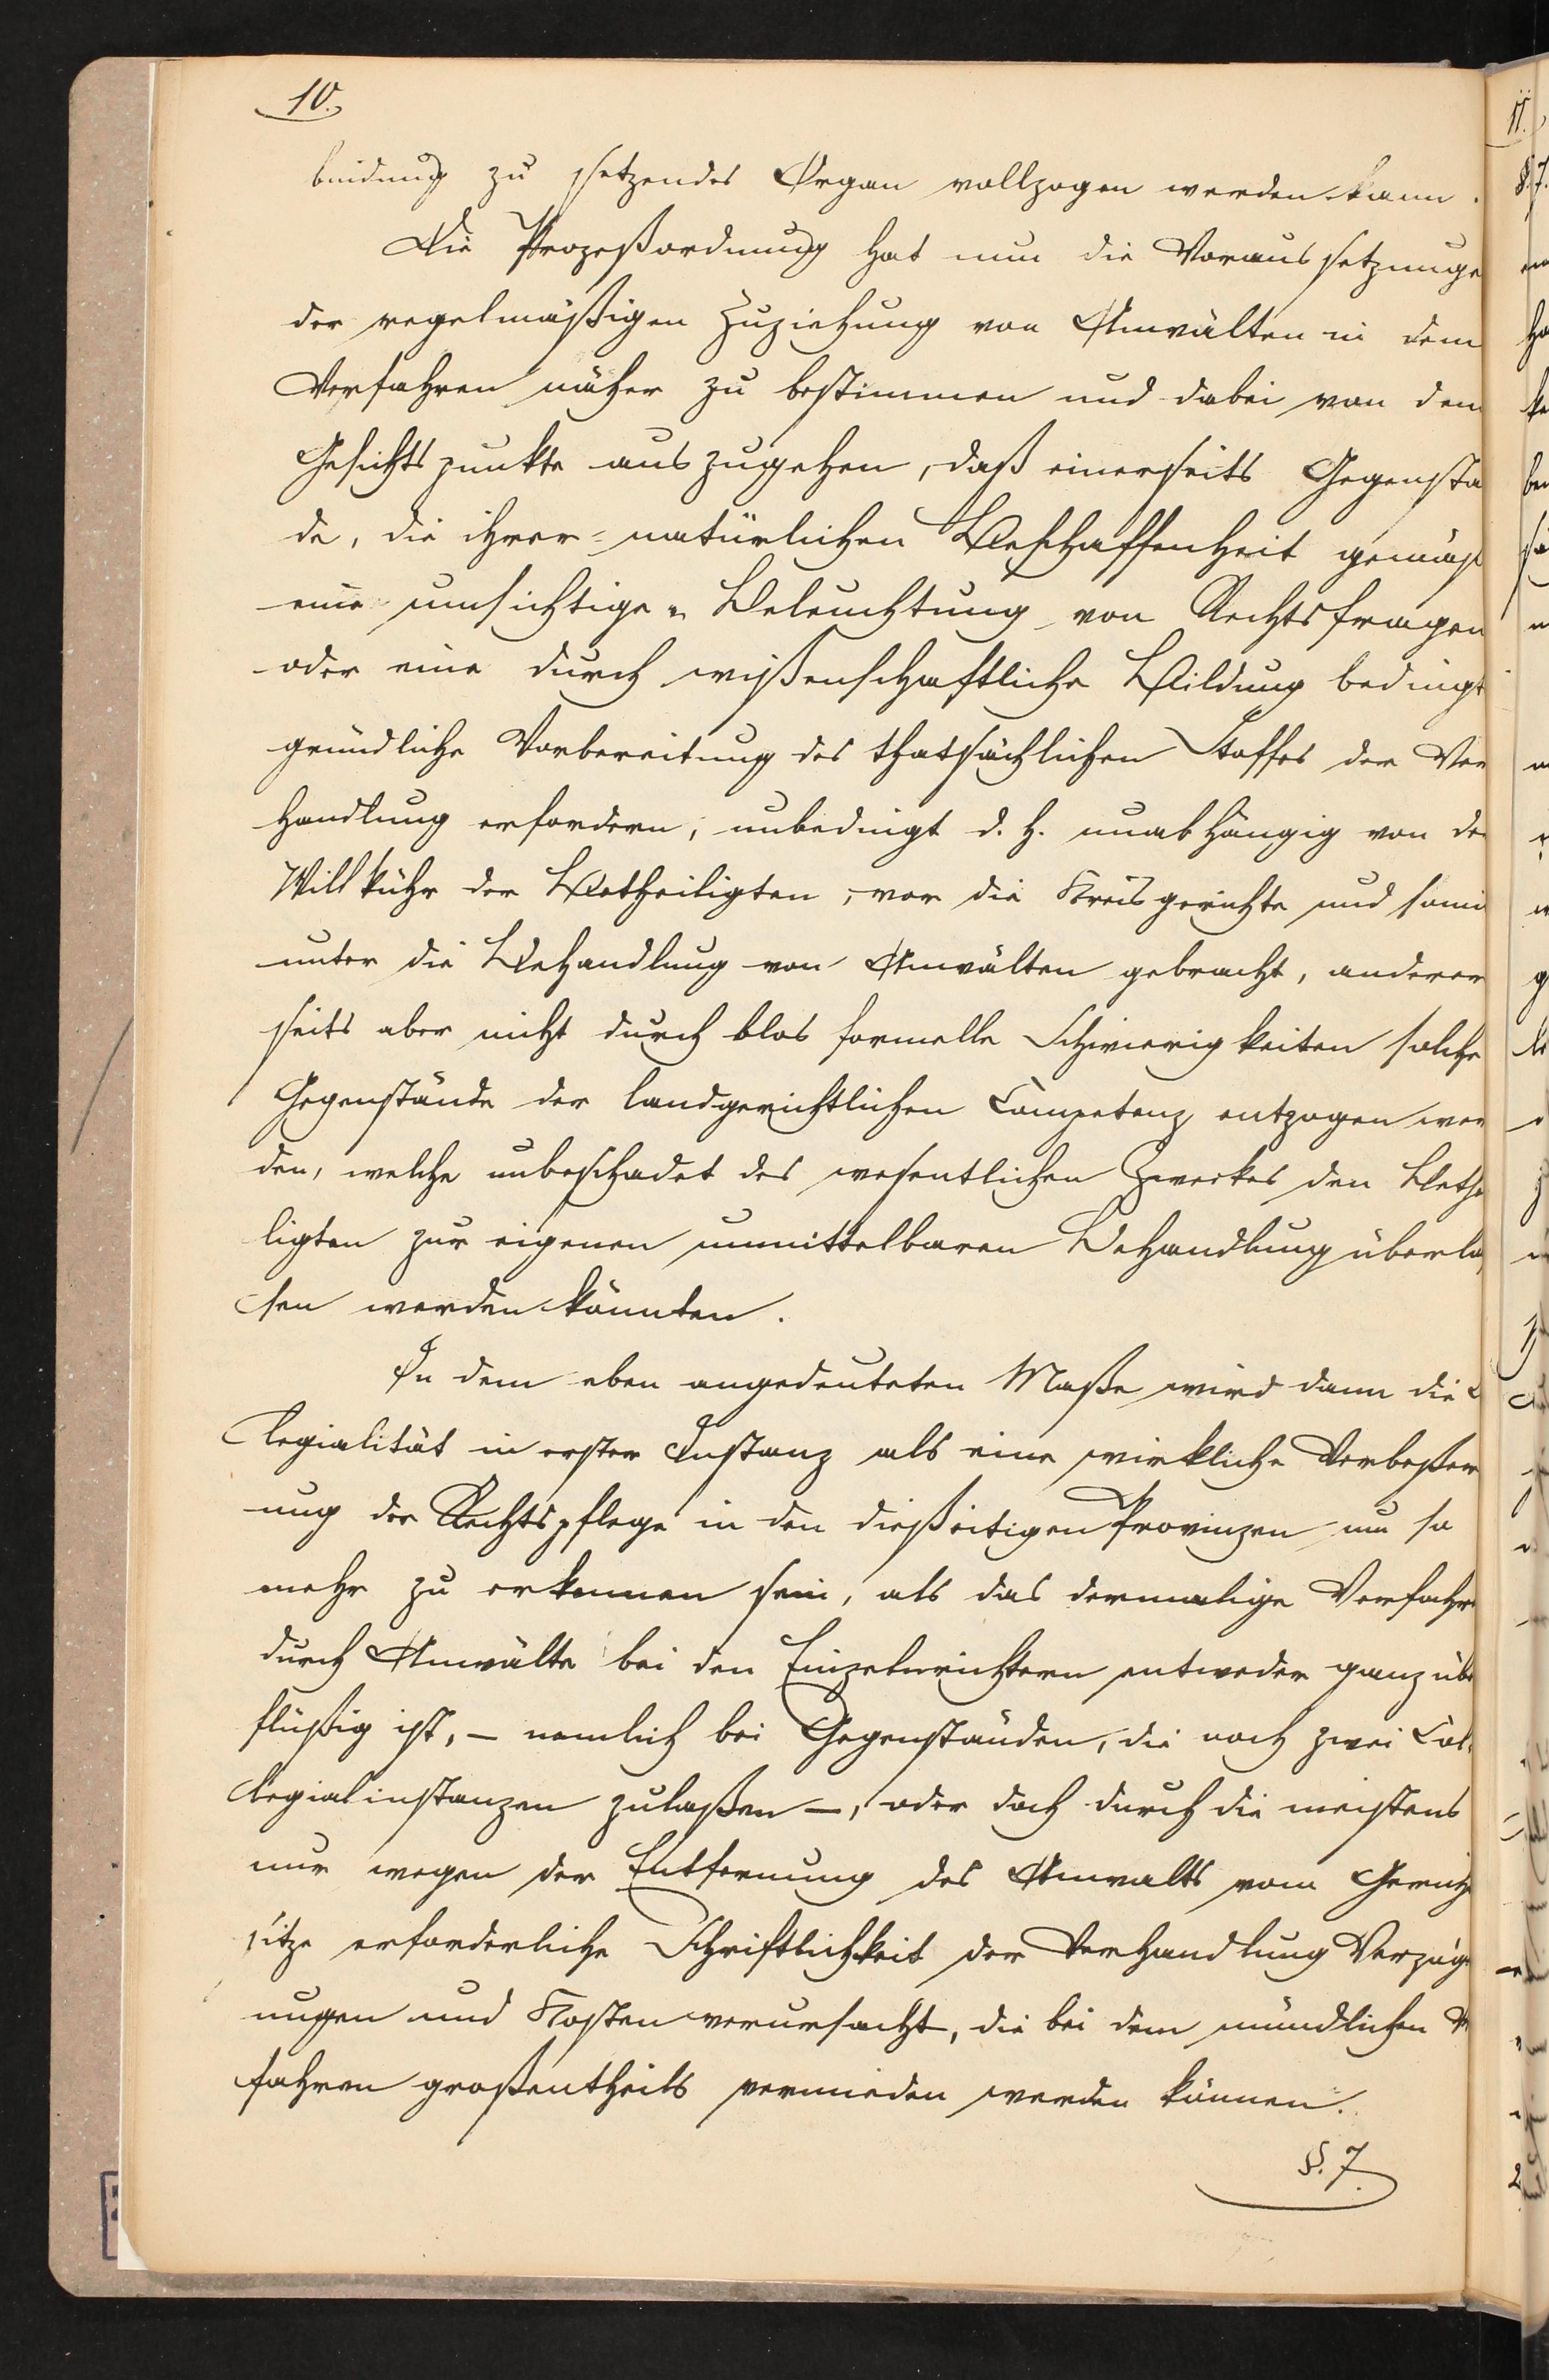 10.
bindung zu setzendes Organ vollzogen werden kann.
Die Prozeßordnung hat nun die Voraussetzunge
der regelmäßigen Zuziehung von Anwälten in dem
Verfahren näher zu bestimmen und dabei von dem
Gesichtspunkte auszugehen, daß einerseits Gegenstä
de, die ihrer natürlichen Beschaffenheit gemäß
eine umsichtige Beleuchtung von Rechtsfragen
oder eine durch wißenschaftliche Bildung bedingt
gründliche Vorbereitung des thatsächlichen Stoffes der Ver
handlung erfordern, unbedingt d. h. unabhängig von de
Willkühr der Betheiligten, vor die Kreisgerichte und somi
unter die Behandlung von Anwälten gebracht, anderer
seits aber nicht durch blos formelle Schwierigkeiten solche
Gegenstände der landgerichtlichen Competenz entzogen wer
den, welche unbeschadet des wesentlichen Zweckes den Bethe
ligten zur eigenen unmittelbaren Behandlung überla
sen werden könnten.
In dem eben angedeuteten Maße wird dann die
legialität in erster Instanz als eine wirkliche Verbeßer
ung der Rechtspflege in den dießeitigen Provinzen um so
mehr zu erkennen sein, als das dermalige Verfahr
durch Anwälte bei den Einzelnrichtern entweder ganz übe
flüßig ist, – nemlich bei Gegenständen, die noch zwei Col-
legialinstanzen zulaßen –, oder doch durch die meistens
nur wegen der Entfernung des Anwalts vom Gerichts
sitze erforderliche Schriftlichkeit der Verhandlung Verzöge
rungen und Kosten verursacht, die bei dem mündlichen V
fahren großentheils vermieden werden können.
§. 7.
11.
§. 7.